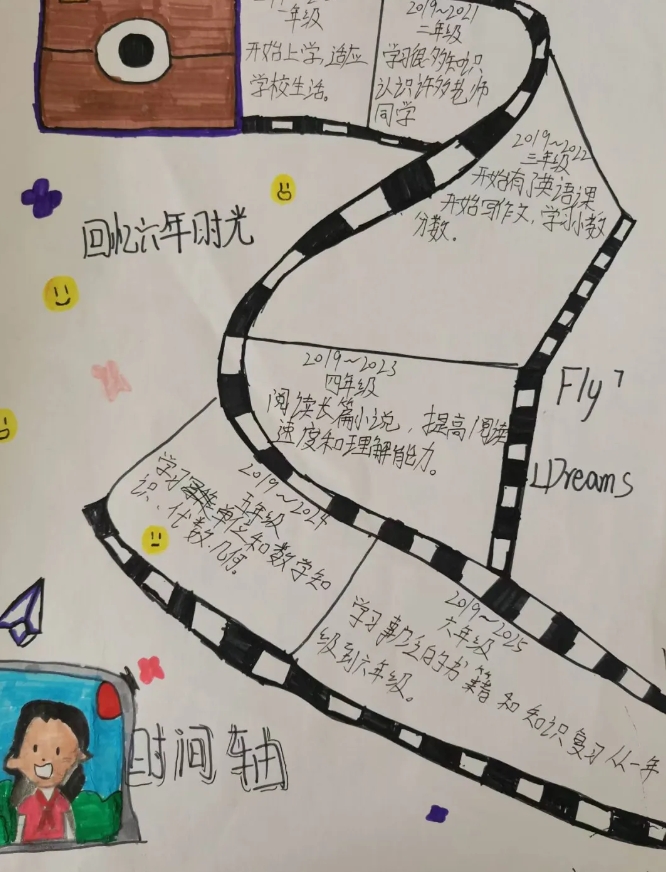 一年级
开始上学,适应
学校生活。
2019~2021
二年级
学习很多知识
认识许多老师
同学
2019~2022
三年级
开始有了英语课
开始写作文,学习小数
分数。
回忆六年时光
2019~2023
四年级
阅读长篇小说,提高阅读
速度和理解能力。
Fly
Dreams
2019~2024
五年级
学习
单位和数学知
识、代数几何。
2019~2025
六年级
学习
的书籍和知识复习从一年
级到六年级。
时间轴